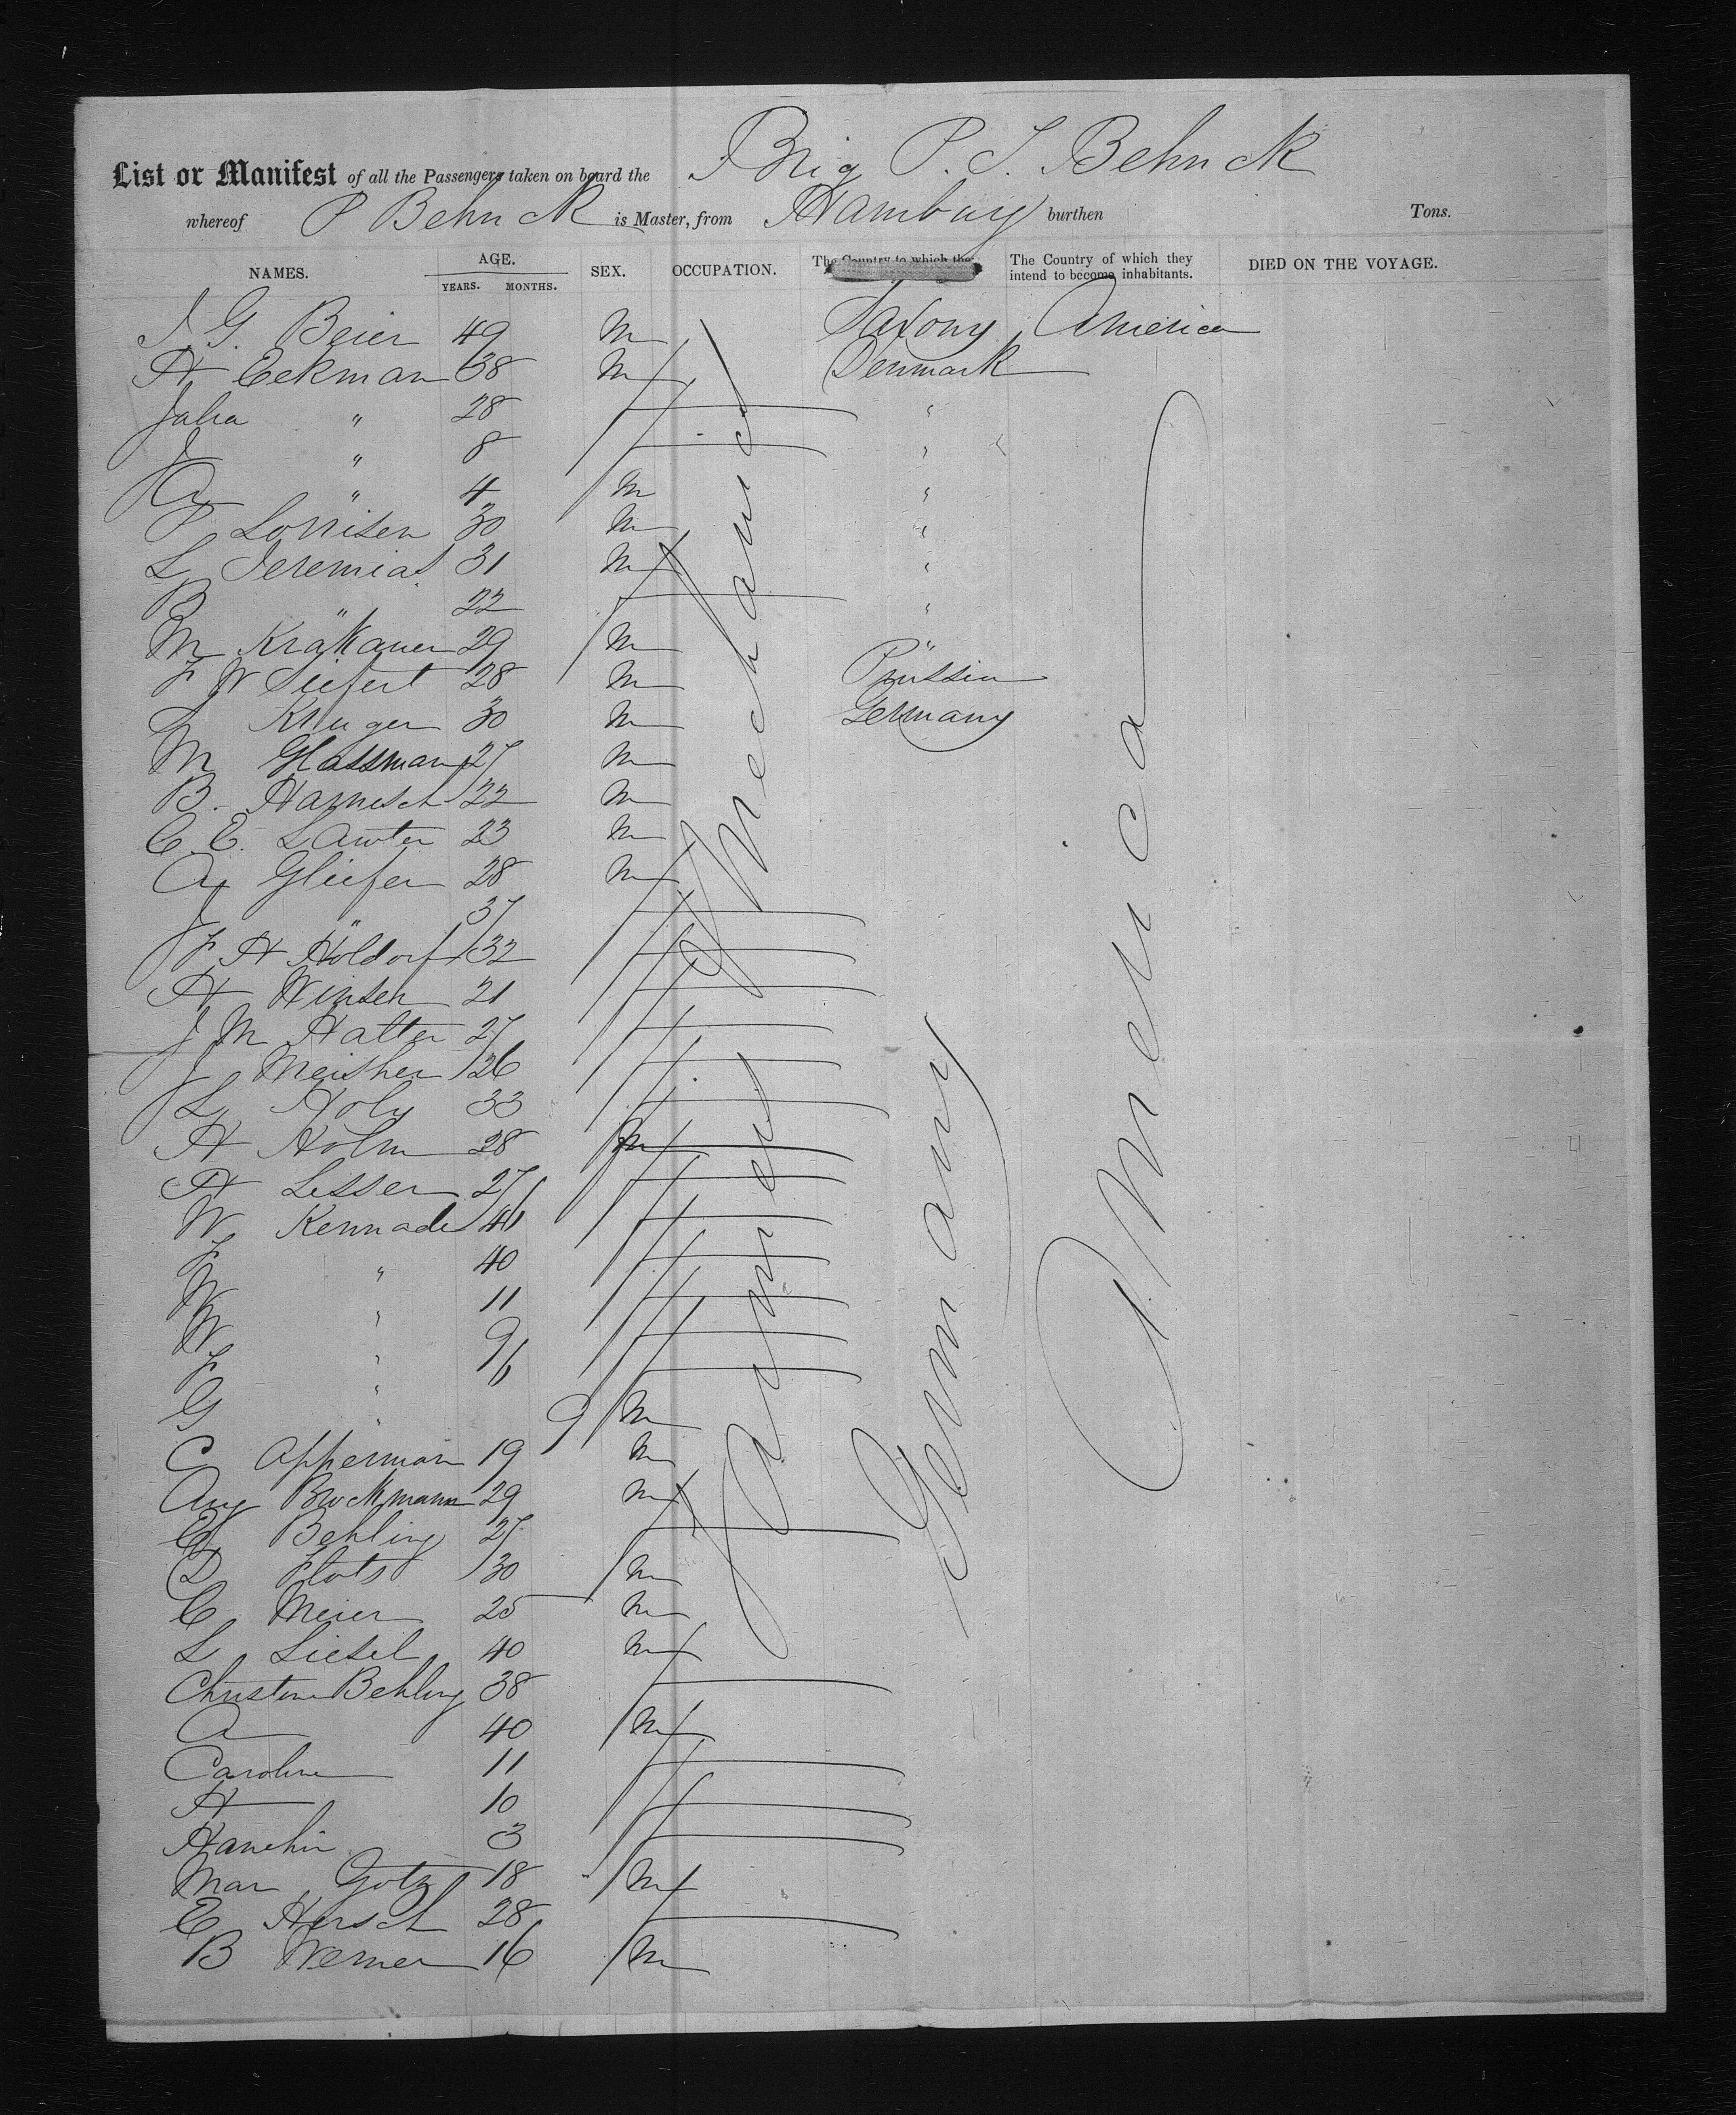 Brig P. J. Behnck
List or Manifest of all the Passengers taken on board the
whereof P Behnck is Master, from Hamburg burthen Tons.
NAMES. AGE. YEARS. MONTHS. SEX. OCCUPATION. The Country to which they The Country of which they intend to become inhabitants. DIED ON THE VOYAGE.
J G. Beier 49 M Saxony America
H Eekman 38 M Denmark
Julia " 28 F "
J " 8 F "
A " 4 M "
P Lorrisen 30 M "
L Jeremias 31 M "
B " 22 F "
M Krakauer 29 M "
F W Siefert 28 M Prussia
Kruger 30 M Germany
M Glassman 27 M
B. Harnisch 22 M
C. E. Lawter 23 M
A Gliefer 28 M
J " 37 F
F H Holdorf 32 F
H Winsen 21 F
J M Hatter 27 F
J Meisher 26 F
L Holy 33 F
H Holm 28
H Lisser 27 F
W Kennade 46 F
F " 40 F
W " 11 F
W " 9 F
F " 6 F
G " 9 M
C Apperman 19 M
Aug Brockmann 29 M
E Behling 27 F
D Flots 30 M
C Meier 25 M
L Liesel 40 M
Christine Behling 38 F
A 40 M
Caroline 11 F
H 10 F
Hanchin 3 F
Mar Gotz 18 M
E Hirsch 28 F
B Werner 16 M
Mechanics
Farmers
Germany
America